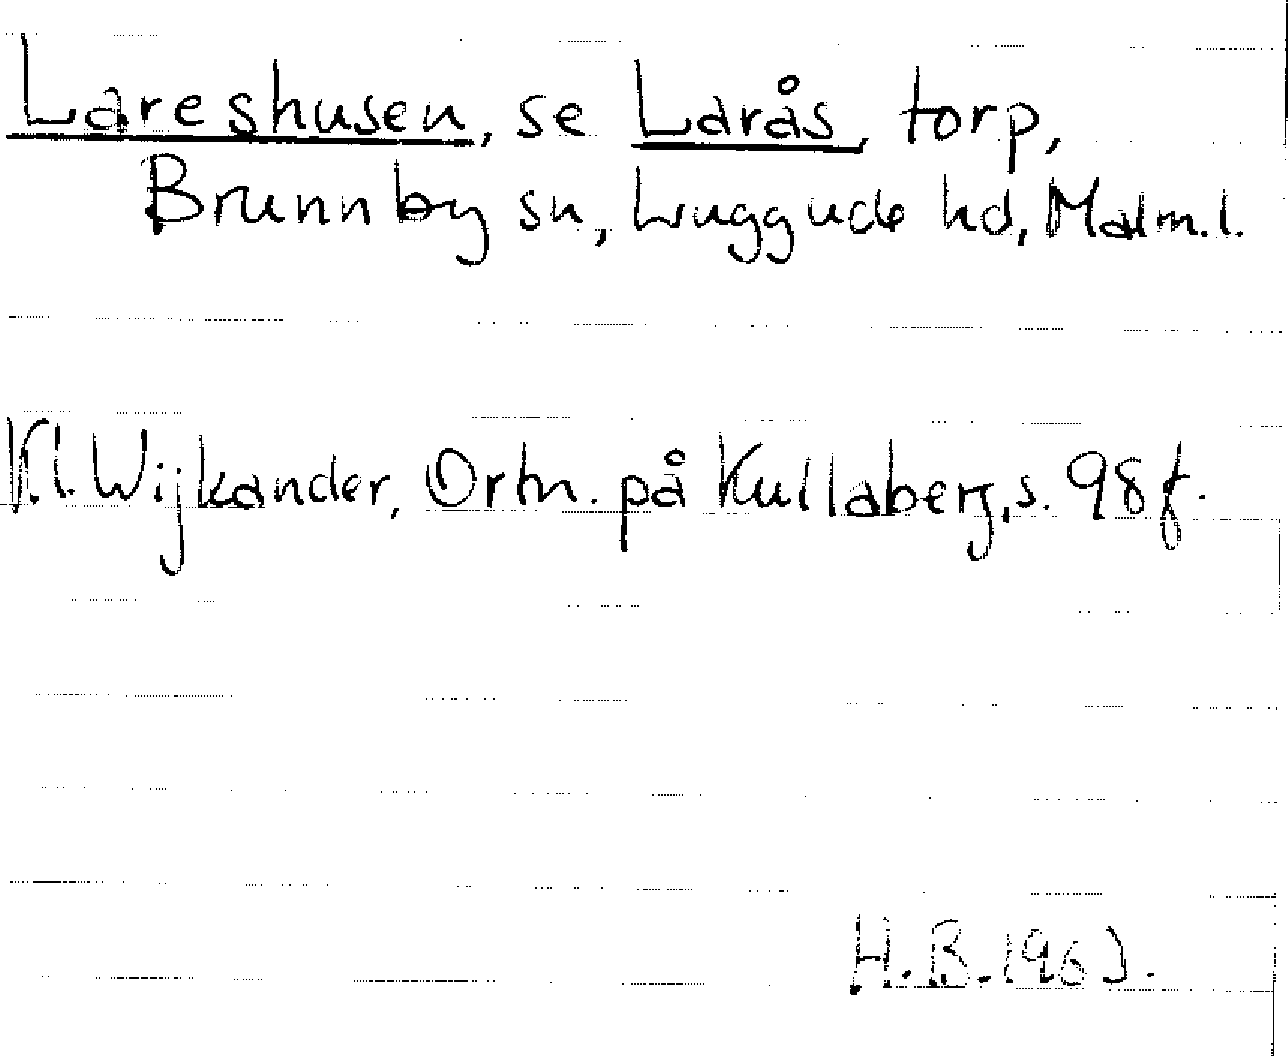 Lareshusen, se Larås, torp,
Brunnby sn, Luggude hd, Malm.l.
K.I. Wijkander, Ortn. på Kullaberg, s. 98 f.
H.B. 1963.